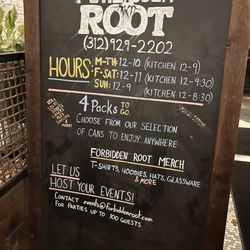 FORBIDDEN
ROOT
(312) 929-2202
HOURS: M-TH: 12-10 (KITCHEN 12-9)
F-SAT: 12-11 (KITCHEN 12-9:30)
SUN: 12-9 (KITCHEN 12-8:30)
4 PACKS TO GO
CHOOSE FROM OUR SELECTION
OF CANS TO ENJOY ANYWHERE
FORBIDDEN ROOT MERCH
T-SHIRTS, HOODIES, HATS, GLASSWARE
& MORE
LET US
HOST YOUR EVENTS!
CONTACT events@forbiddenroot.com
FOR PARTIES UP TO 100 GUESTS